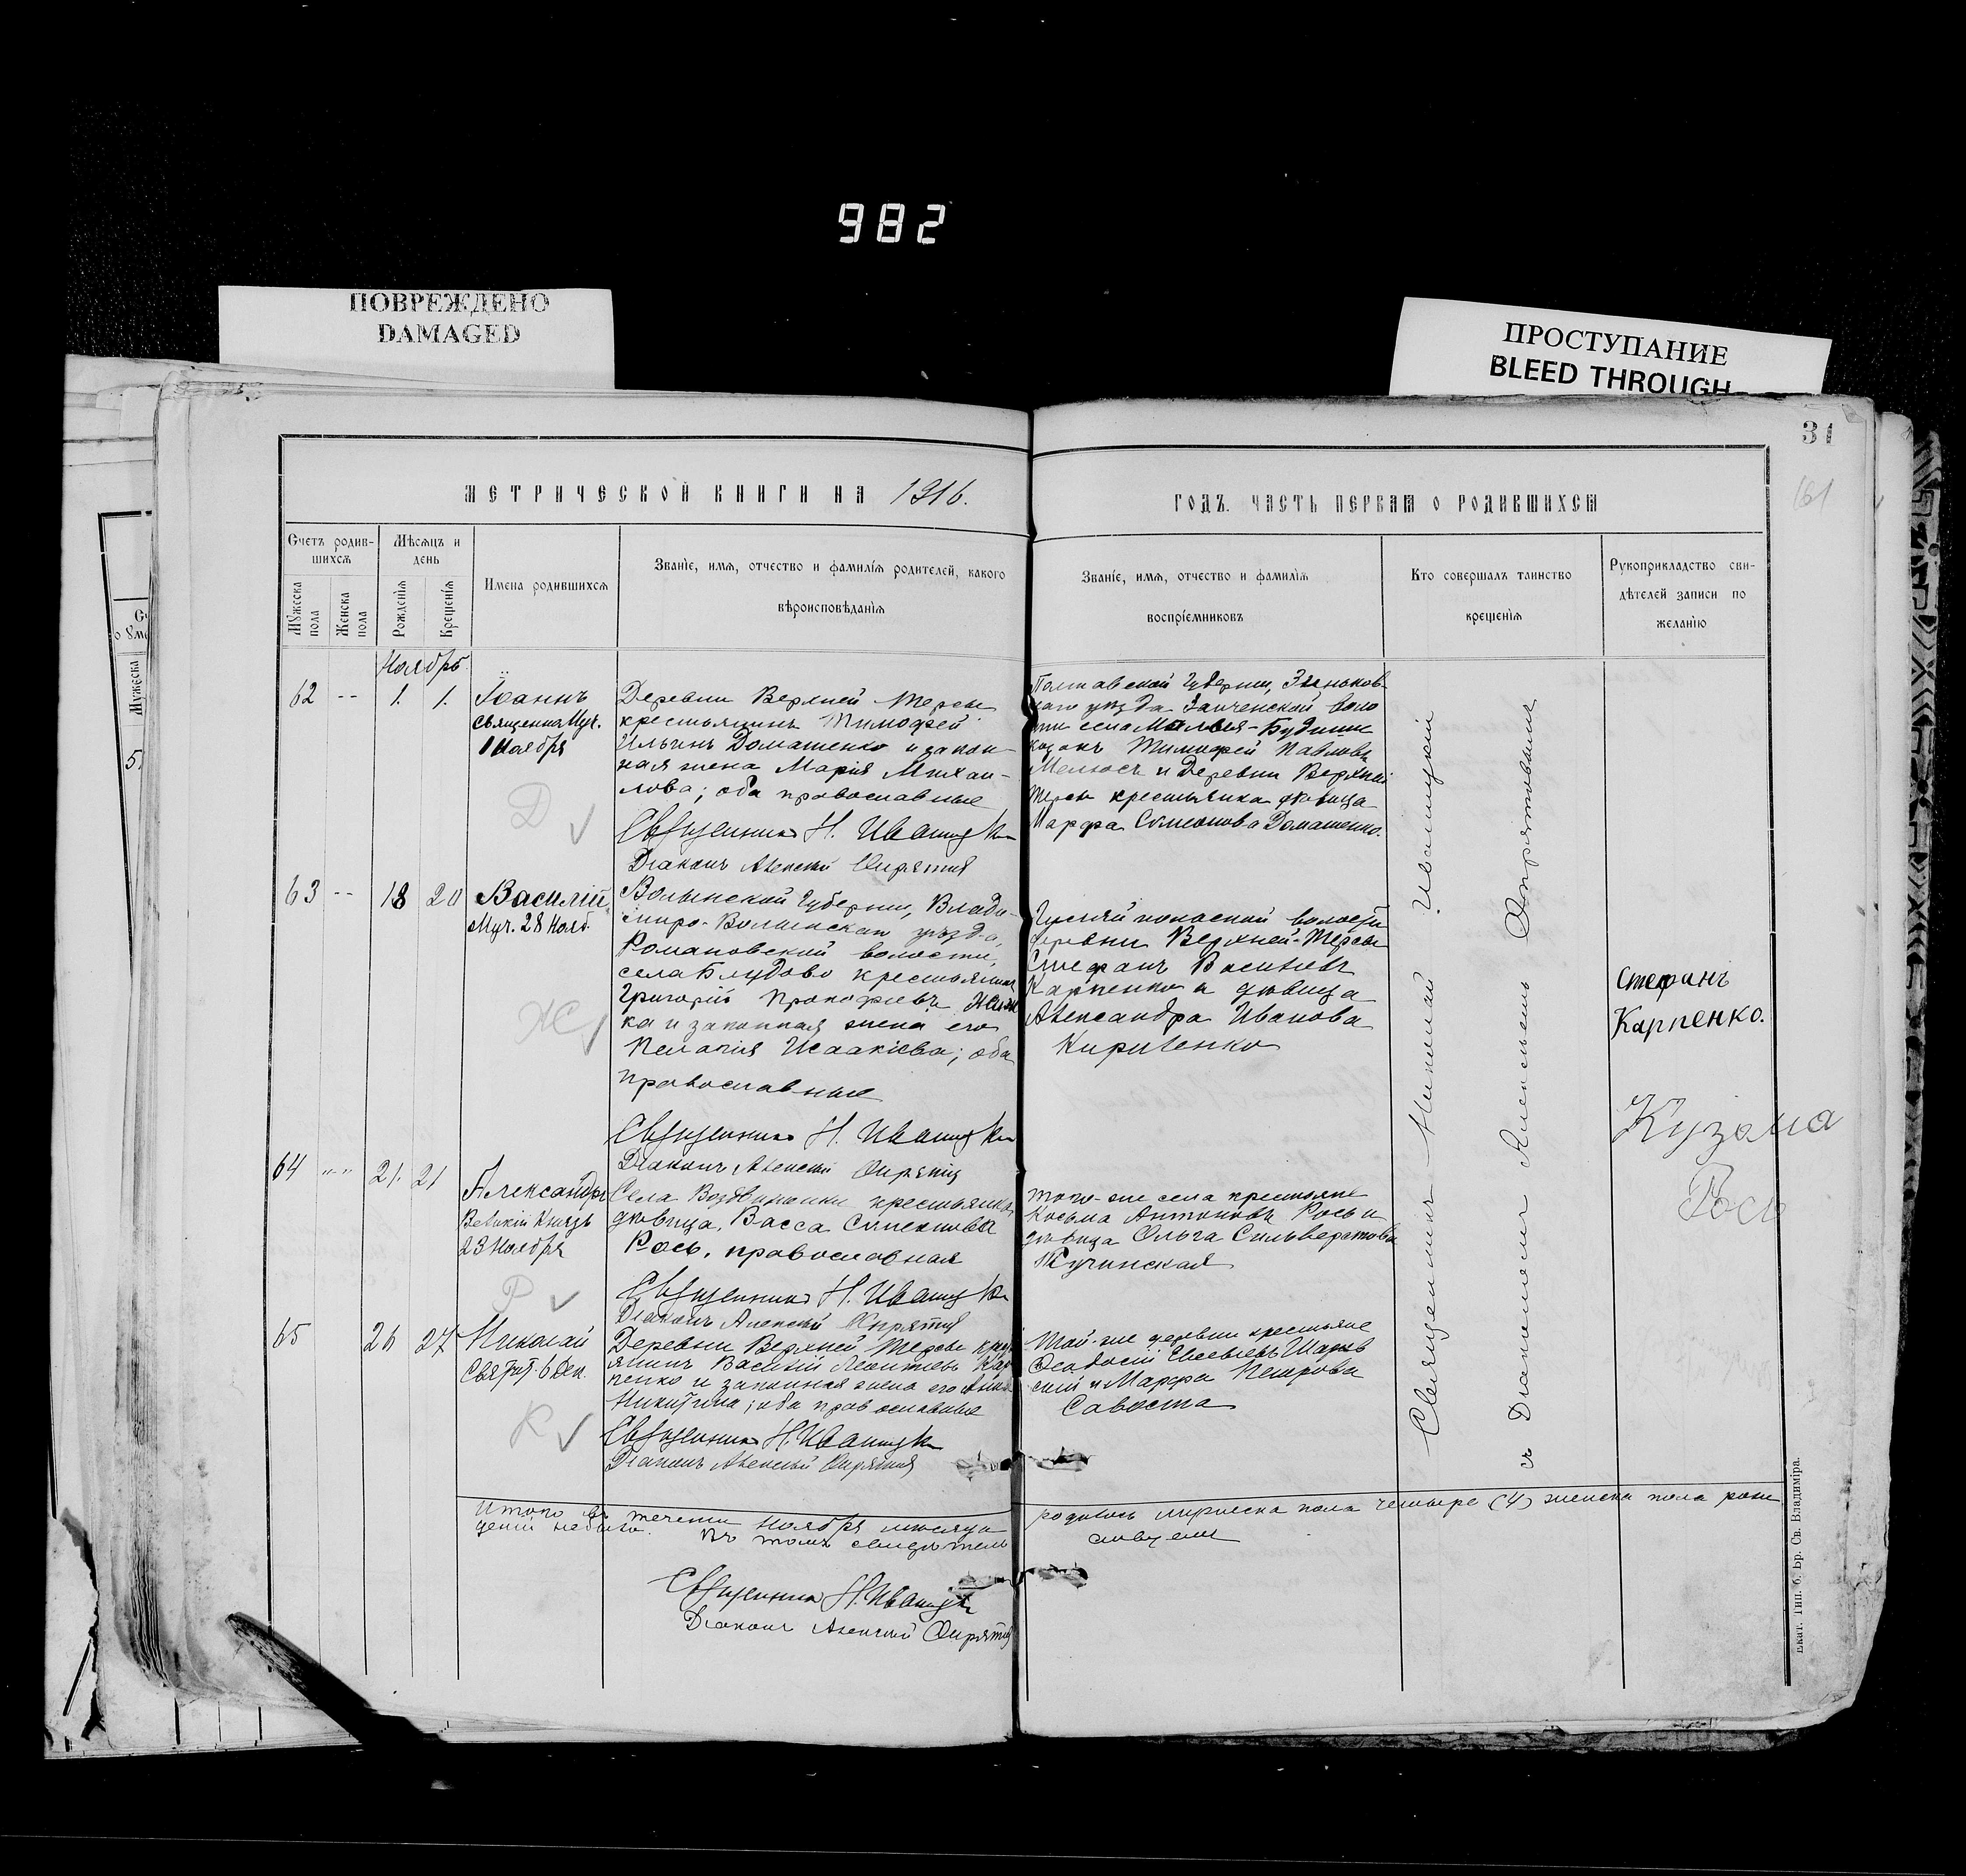 982
ПОВРЕЖДЕНО
DAMAGED
ПРОСТУПАНИЕ
BLEED THROUGH
31
161
МЕТРИЧЕСКОЙ КНИГИ НА 1916.
ГОДЪ. ЧАСТЬ ПЕРВАЯ О РОДИВШИХСЯ
Счетъ родив-
шихся
Мужеска пола
Женска пола
Мѣсяцъ и
день
Рожденія
Крещенія
Имена родившихся
Званіе, имя, отчество и фамилія родителей, какого
вѣроисповѣданія
Званіе, имя, отчество и фамилія
воспріемниковъ
Кто совершалъ таинство
крещенія
Рукоприкладство сви-
дѣтелей записи по
желанію
Ноябрь
62 -- 1. 1.
Іоаннъ
Священномуч.
1 Ноября
Д
Деревни Верхней Терсы
крестьянинъ Тимофей
Ильинъ Домашенко и закон-
ная жена Марія Михаи-
лова; оба православные
Священникъ Н. Иваницкій
Діаконъ Алексѣй Опрятный
Полтавской Губерніи, Зѣньков-
скаго уѣзда
села Малыя-Будища
козакъ Тимофей Павловъ
и Деревни Верхней
Терсы крестьянка дѣвица
Марфа Симеонова Домашенко.
63 -- 18 20
Василій
Муч. 28 Нояб.
Ж
Волынской Губерніи, Влади-
міро-Волынскаго уѣзда,
Романовской волости,
села Блудово крестьянинъ
Григорій Прокофіевъ
и законная жена его
Пелагія Исаакіева; оба
православные
Священникъ Н. Иваницкій
Діаконъ Алексѣй Опрятный
волости
деревни Верхней-Терсы
Стефанъ Васильевъ
Карпенко и дѣвица
Александра Иванова
Кириленко
Стефанъ
Карпенко.
64 -- 21. 21
Александръ
Великій Князь
23 Ноября
Р
Села Воздвиженки крестьянка
дѣвица, Васса
Рось, православная
Священникъ Н. Иваницкій
Діаконъ Алексѣй Опрятный
того-же села крестьяне
Косьма Антоновъ Рось и
дѣвица Ольга Сильверстова
Кучинская
Кузьма
Рось
65 26 27
Николай
Свят. 6 Дек.
К
Деревни Верхней Терсы крест-
янинъ Василій Леонтіевъ Кар-
пенко и законная жена его Анна
Никитина; оба православные
Священникъ Н. Иваницкій
Діаконъ Алексѣй Опрятный
Той-же деревни крестьяне
Ѳеодосій
и Марфа Петрова
Савоста
Священникъ Николай Иваницкій
съ Діакономъ Алексѣемъ Опрятнымъ
Итого въ теченіи Ноября мѣсяца родилось мужеска пола четыре (4) женска пола рож-
деній небыло. Въ томъ свидѣтель-
ствуемъ
Священникъ Н. Иваницкій
Діаконъ Алексѣй Опрятный
Екат. Тип. б. Бр. Св. Владиміра.